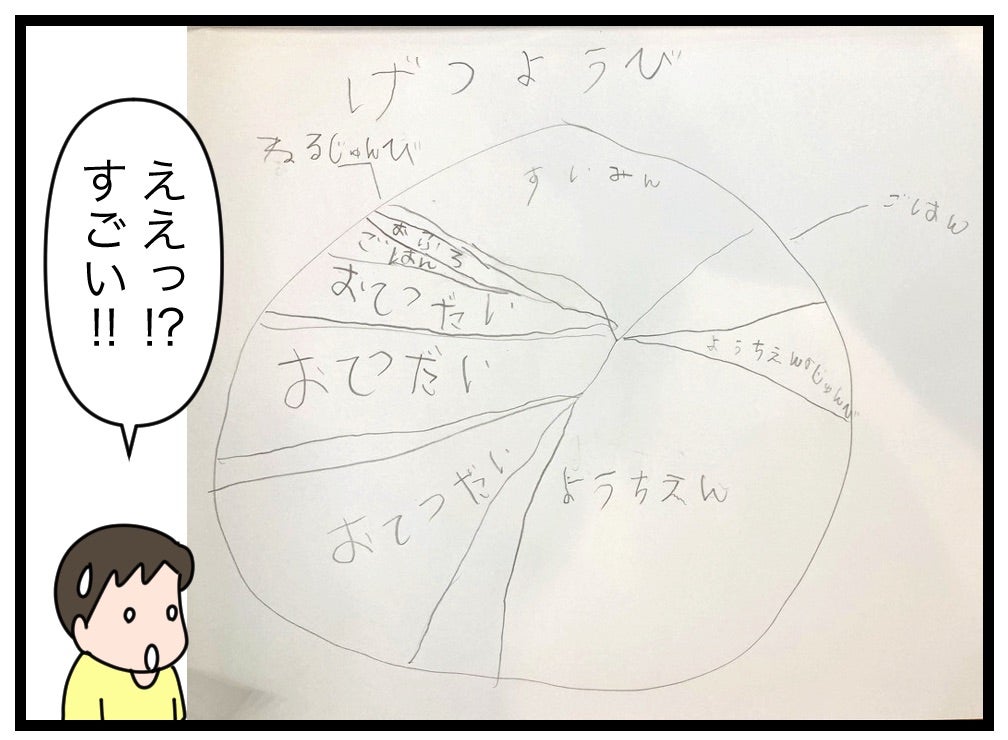 ええっ!?
すごい!!
げつようび
ねるじゅんび
すいみん
ごはん
おふろ
ごはん
おてつだい
ようちえんのじゅんび
おてつだい
おてつだい
ようちえん